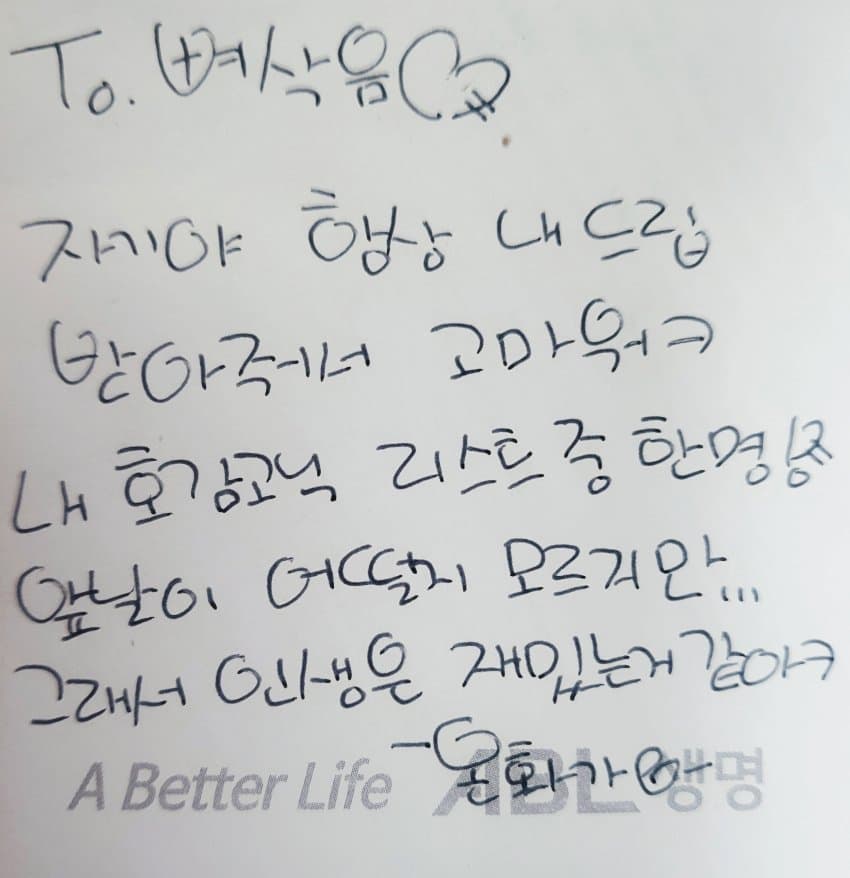 To. 벼삭음♡
자기야 항상 내 드립
받아줘서 고마워ㅋ
내 호감고닉 리스트 중 한명
앞날이 어떨지 모르지만...
그래서 인생은 재밌는거같아ㅋ
A Better Life ABL생명